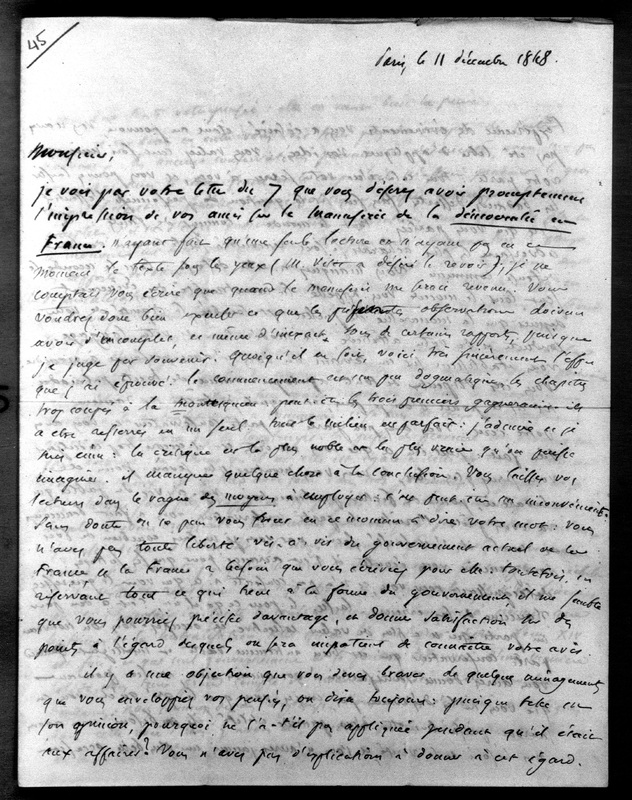 45
Paris, le 11 décembre 1848.
Monsieur,
je vois par votre lettre du 7 que vous désirez avoir promptement
l'impression de vos amis sur le manuscrit de la démocratie en
France. n'ayant fait qu'une seule lecture et n'ayant pas en ce
moment le texte sous les yeux (M. Vitet a désiré le revoir), je ne
comptais vous écrire que quand le manuscrit me serait revenu. Vous
voudrez donc bien excuser ce que les présentes observations doivent
avoir d'incomplet, et même d'inexact sous de certains rapports, puisque
je juge par souvenir. quoiqu'il en soit, voici très sincèrement l'effet
que j'ai éprouvé. le commencement est un peu dogmatique, les chapitres
trop coupés à la Montesquieu peut-être les trois premiers gagneraient-ils
à être resserrés en un seul. tout le milieu est parfait: j'admire et je
suis ému: la critique est la plus noble et la plus vraie qu'on puisse
imaginer. il manque quelque chose à la conclusion. Vous laissez vos
lecteurs dans le vague des moyens à employer: c'est peut-être un inconvénient.
Sans doute on ne peut vous forcer en ce moment à dire votre mot: vous
n'avez pas toute liberté vis-à-vis du gouvernement actuel de la
France et la France a besoin que vous écriviez pour elle: toutefois, en
réservant tout ce qui tient à la forme du gouvernement, il me semble
que vous pourriez préciser davantage, et donner satisfaction sur des
points à l'égard desquels on sera impatient de connaître votre avis.
il y a une objection que vous devez braver: de quelque ménagement
que vous enveloppiez vos pensées, on dira toujours: puisque telle est
son opinion, pourquoi ne l'a-t-il pas appliquée pendant qu'il était
aux affaires? Vous n'avez pas d'explications à donner à cet égard.